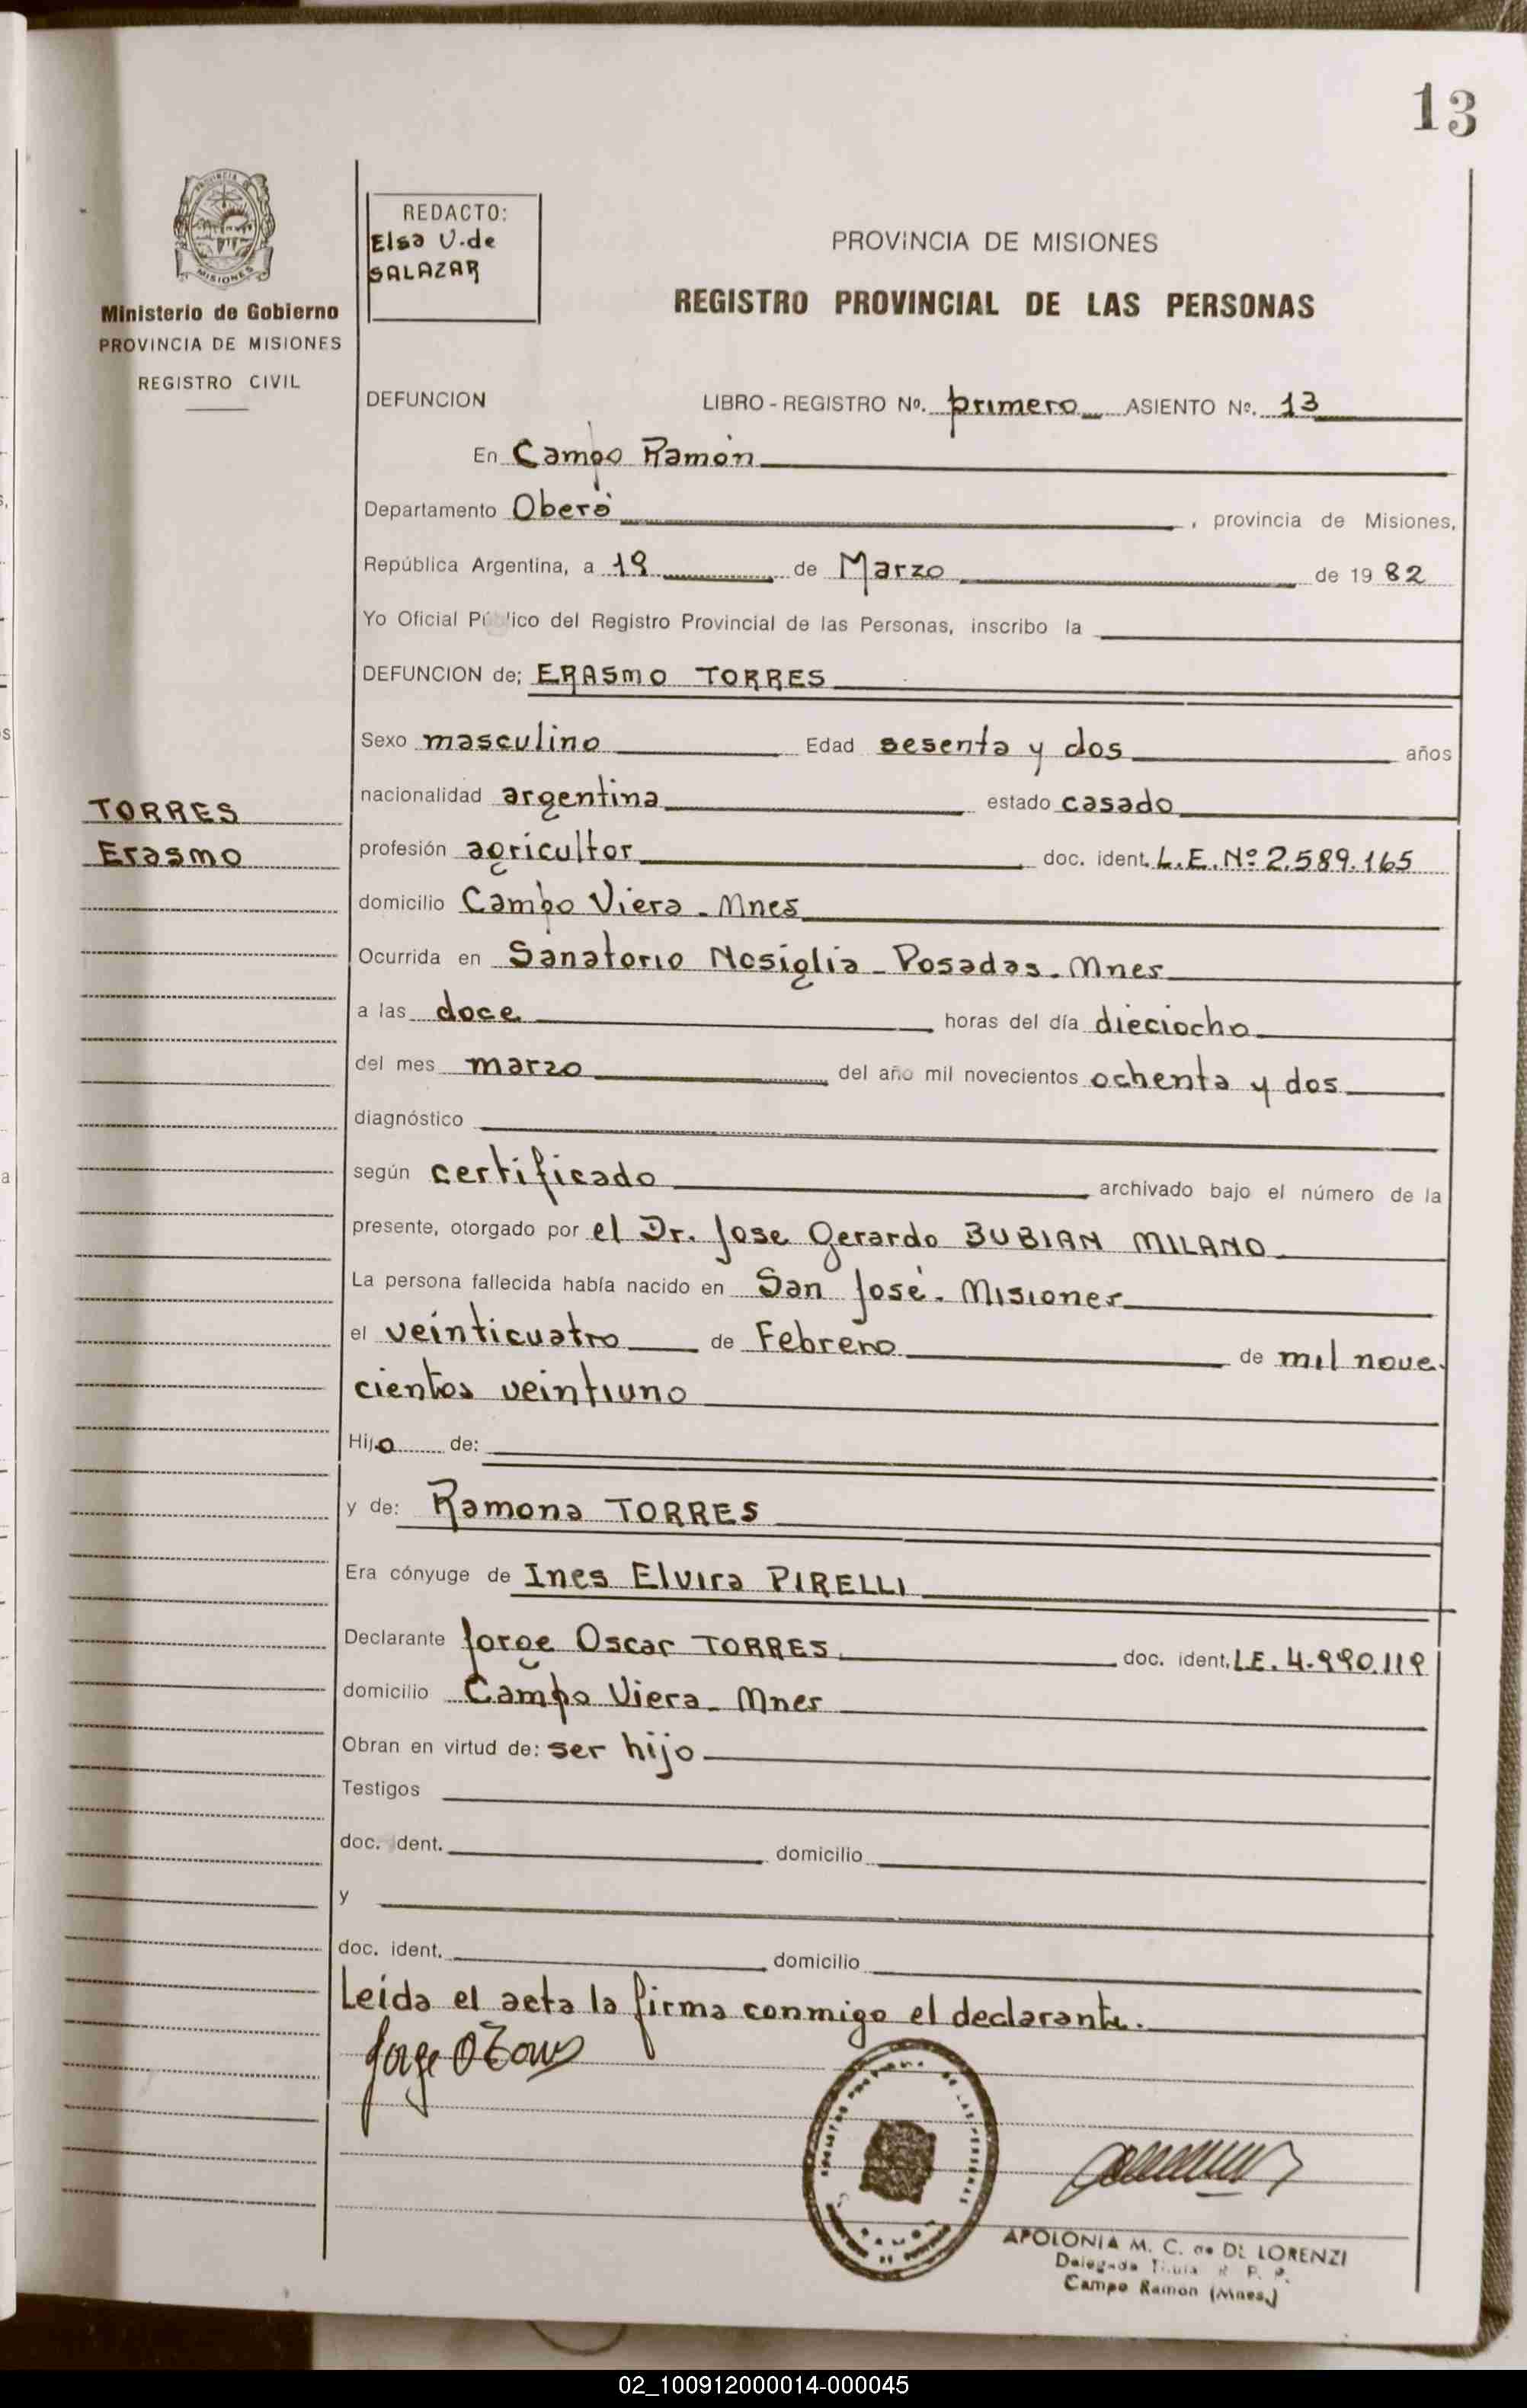 13
PROVINCIA DE
MISIONES
Ministerio de Gobierno
PROVINCIA DE MISIONES
REGISTRO CIVIL
REDACTO:
Elsa V. de
SALAZAR
PROVINCIA DE MISIONES
REGISTRO PROVINCIAL DE LAS PERSONAS
DEFUNCION LIBRO - REGISTRO Nº. primero ASIENTO Nº. 13
En Campo Ramón
Departamento Oberá, provincia de Misiones,
República Argentina, a 19 de Marzo de 1982
Yo Oficial Público del Registro Provincial de las Personas, inscribo la
DEFUNCION de; ERASMO TORRES
Sexo masculino Edad sesenta y dos años
nacionalidad argentina estado casado
TORRES
Erasmo
profesión agricultor doc. ident. L.E. Nº 2.589.165
domicilio Campo Viera - Mnes
Ocurrida en Sanatorio Nosiglia - Posadas. Mnes
a las doce horas del día dieciocho
del mes marzo del año mil novecientos ochenta y dos
diagnóstico
según certificado archivado bajo el número de la
presente, otorgado por el Dr. Jose Gerardo BUBIAN MILANO
La persona fallecida había nacido en San José. Misiones
el veinticuatro de Febrero de mil nove-
cientos veintiuno
Hijo de:
y de: Ramona TORRES
Era cónyuge de Ines Elvira PIRELLI
Declarante Jorge Oscar TORRES doc. ident. L.E.
domicilio Campo Viera - Mnes
Obran en virtud de: ser hijo
Testigos
doc. ident. domicilio
y
doc. ident. domicilio
Leida el acta la firma conmigo el declarante.
Jorge O Torres
APOLONIA M. C. de DE LORENZI
Delegada Titular R. P. P.
Campo Ramon (Mnes.)
02_100912000014-000045